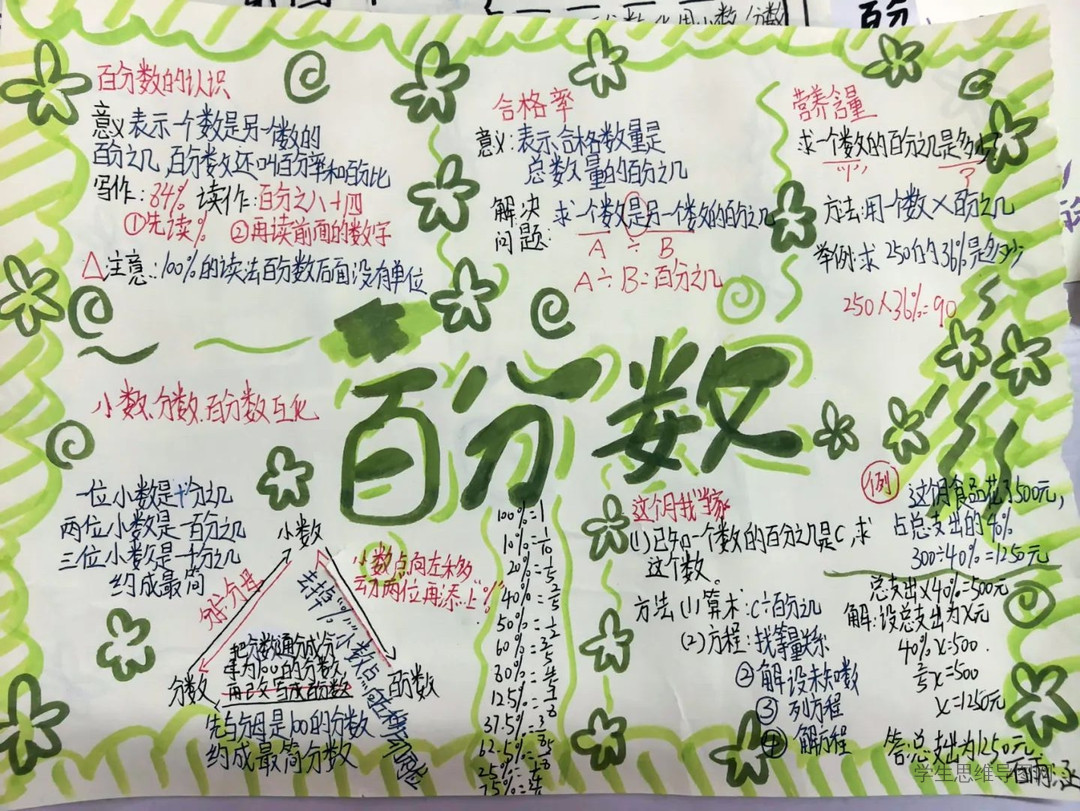 百分数的认识
意义:表示一个数是另一个数的
百分之几,百分数还叫百分率和百分比
写作:84% 读作:百分之八十四
①先读% ②再读前面的数字
△注意:100%的读法百分数后面没有单位
合格率
意义:表示合格数量是
总数量的百分之几
解决问题:
求一个数是另一个数的百分之几
A ÷ B
A÷B=百分之几
营养含量
求一个数的百分之几是多少
"1" ?
方法:用个数×百分之几
举例:求250的36%是多少
250×36%=90
百分数
小数、分数、百分数互化
一位小数是十分之几
两位小数是一百分之几
三位小数是千分之几
约成最简
小数
小数点向左移多
动两位再添上"%"
把分数通分成分
母为100的分数
再改写成百分数
分数
百分数
先写分母是100的分数
约成最简分数
100%=1
10%=1/10
20%=1/5
40%=2/5
50%=1/2
60%=3/5
这个月我当家
(1)已知一个数的百分之几是C,求
这个数。
方法:(1)算术:C÷百分之几
(2)方程:找等量关系
②解设未知数
③列方程
④解方程
例
这个月食品花了500元,
占总支出的40%
300÷40%=1250元
总支出×40%=500元
解:设总支出为X元
40%x=500
2/5x=500
x=1250元
答:总支出为1250元
学生思维导